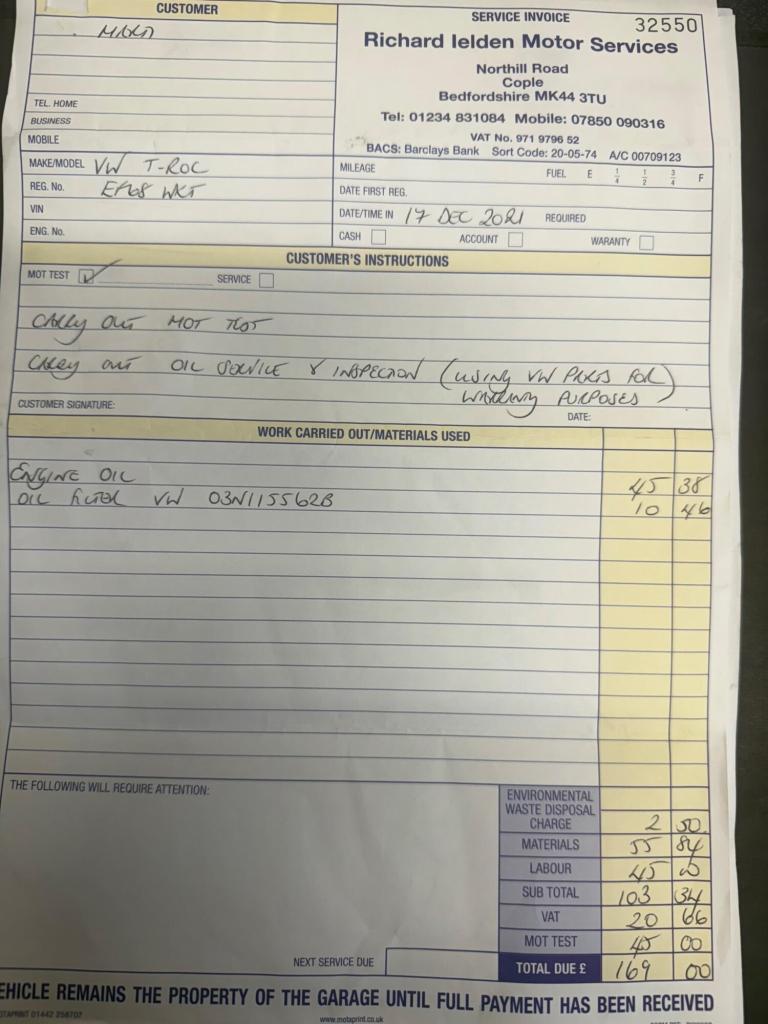 CUSTOMER
SERVICE INVOICE
32550
Richard Ielden Motor Services
Northill Road
Cople
Bedfordshire MK44 3TU
Tel: 01234 831084 Mobile: 07850 090316
VAT No. 971 9796 52
BACS: Barclays Bank Sort Code: 20-05-74 A/C 00709123
TEL. HOME
BUSINESS
MOBILE
MAKE/MODEL VW T-ROC
REG. No. EF68 WKT
VIN
ENG. No.
MILEAGE FUEL E 1/4 1/2 3/4 F
DATE FIRST REG.
DATE/TIME IN 17 DEC 2021 REQUIRED
CASH ACCOUNT WARANTY
CUSTOMER'S INSTRUCTIONS
MOT TEST ✓ SERVICE
CARRY OUT MOT TEST
CARRY OUT OIL SERVICE & INSPECTION (USING VW PARTS FOR
WARRANTY PURPOSES)
CUSTOMER SIGNATURE: DATE:
WORK CARRIED OUT/MATERIALS USED
ENGINE OIL 45 38
OIL FILTER VW 03N115562B 10 46
THE FOLLOWING WILL REQUIRE ATTENTION:
ENVIRONMENTAL
WASTE DISPOSAL
CHARGE 2 50
MATERIALS 55 84
LABOUR 45 00
SUB TOTAL 103 34
VAT 20 66
MOT TEST 45 00
NEXT SERVICE DUE
TOTAL DUE £ 169 00
EHICLE REMAINS THE PROPERTY OF THE GARAGE UNTIL FULL PAYMENT HAS BEEN RECEIVED
www.motaprint.co.uk